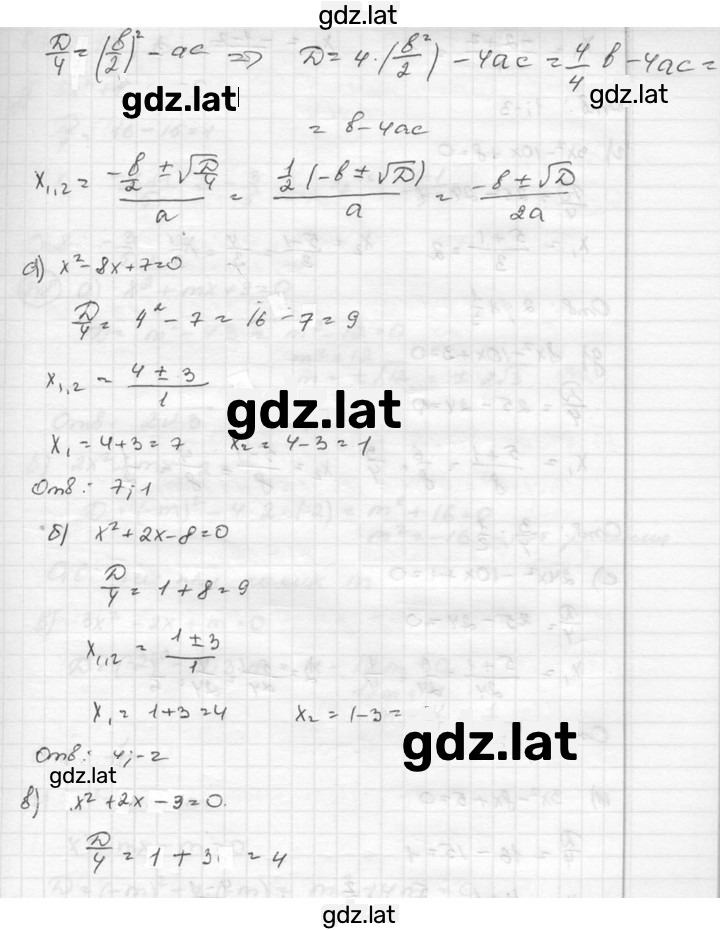 gdz.lat
D/4 = (b/2)² - ac => D = 4·(b²/2) - 4ac = 4/4 b - 4ac =
gdz.lat gdz.lat
= b - 4ac
x₁,₂ = (-b/2 ± √D/4)/a = (1/2 (-b ± √D))/a = (-b ± √D)/2a
а) x² - 8x + 7 = 0
D/4 = 4² - 7 = 16 - 7 = 9
x₁,₂ = (4 ± 3)/1
gdz.lat
x₁ = 4+3 = 7 x₂ = 4-3 = 1
Отв: 7; 1
б) x² + 2x - 8 = 0
D/4 = 1 + 8 = 9
x₁,₂ = (1 ± 3)/1
x₁ = 1+3 = 4 x₂ = 1-3 =
gdz.lat
Отв: 4; -2
gdz.lat
в) x² + 2x - 3 = 0.
D/4 = 1 + 3 = 4
gdz.lat